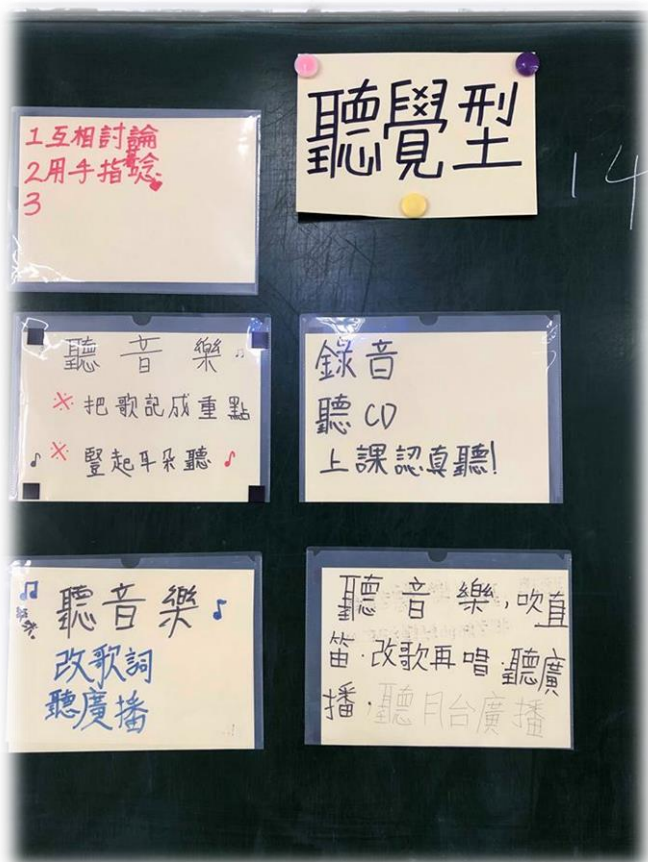 聽覺型
14
1互相討論
2用手指著唸
3
聽音樂
※把歌記成重點
※豎起耳朵聽
錄音
聽CD
上課認真聽!
聽音樂
改歌詞
聽廣播
聽音樂,吹直
笛.改歌再唱.聽廣
播.聽月台廣播